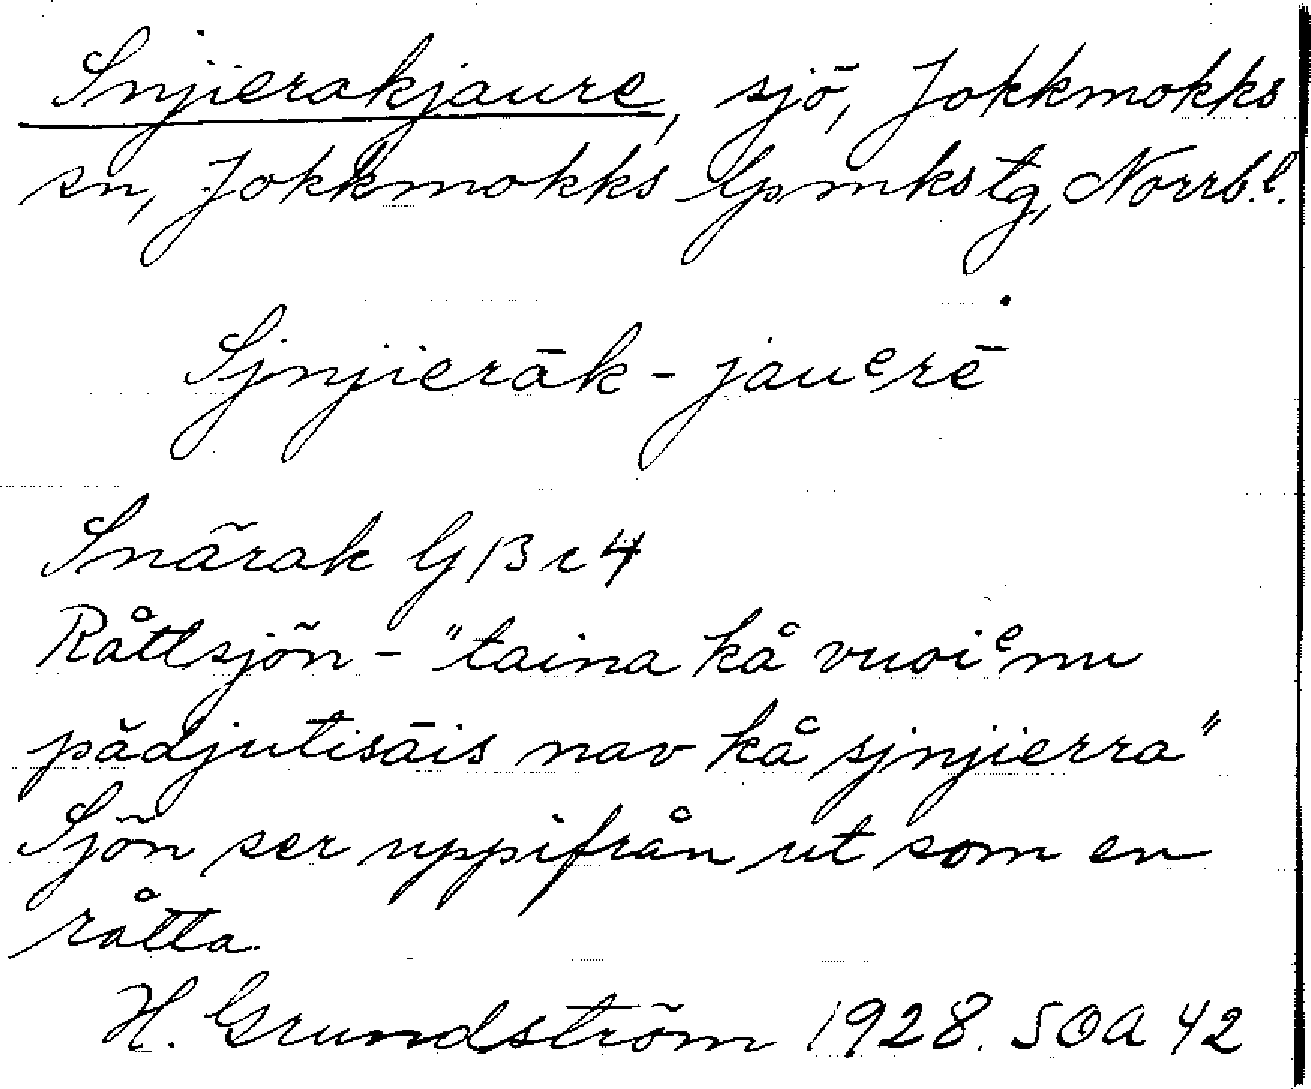 Snjierakjaure, sjö, Jokkmokks
sn, Jokkmokks lpmkstg, Norrb.l.
Sjnjierāk - jauᵉrē
Snärak GBc4
Råttsjön - "taina kå vuoiᵉnu
pādjutisāis nav kå sjnjierra"
Sjön ser uppifrån ut som en
råtta
H. Grundström 1928. SOA 42